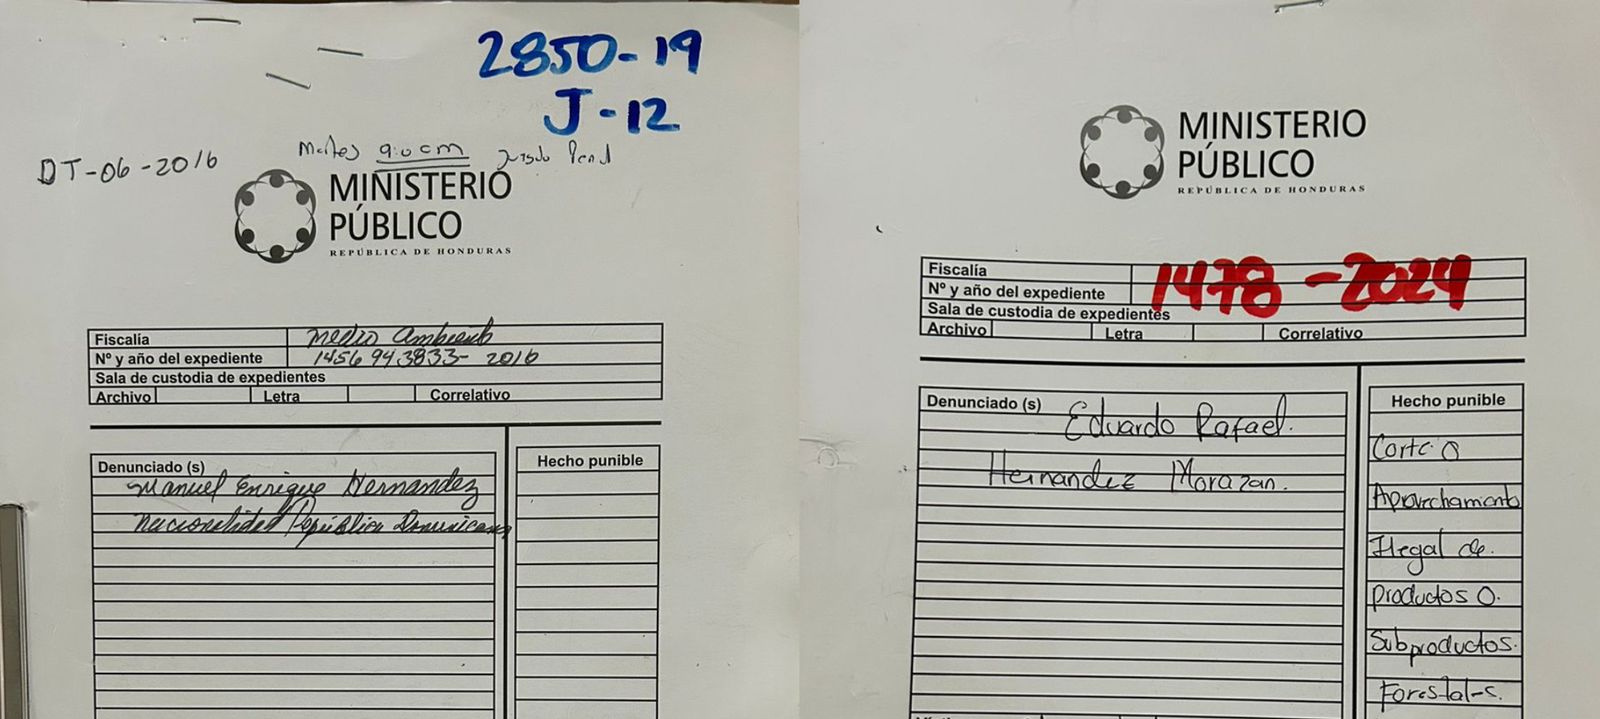 2850-19
J-12
DT-06-2016
Martes 9:00 am Juzgado Penal
MINISTERIO
PÚBLICO
REPÚBLICA DE HONDURAS
Fiscalía Medio Ambiente
Nº y año del expediente 1456943833-2016
Sala de custodia de expedientes
Archivo Letra Correlativo
Denunciado (s)
Manuel Enrique Hernandez
Nacionalidad República Dominicana
Hecho punible
MINISTERIO
PÚBLICO
REPÚBLICA DE HONDURAS
Fiscalía
Nº y año del expediente 1478-2024
Sala de custodia de expedientes
Archivo Letra Correlativo
Denunciado (s) Eduardo Rafael.
Hernandez Morazan.
Hecho punible
Corte O
Aprovechamiento
Ilegal de.
productos O.
Subproductos.
Forestales.